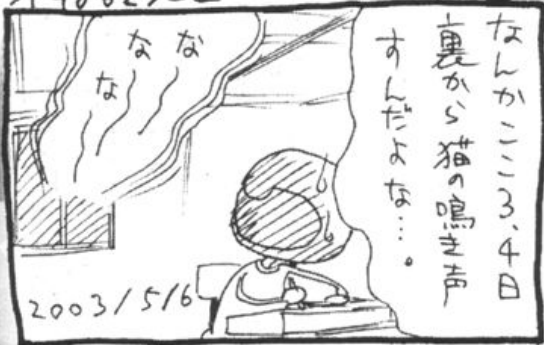 なんかここ3、4日
裏から猫の鳴き声
すんだよな…。
な
な
な
2003/5/6